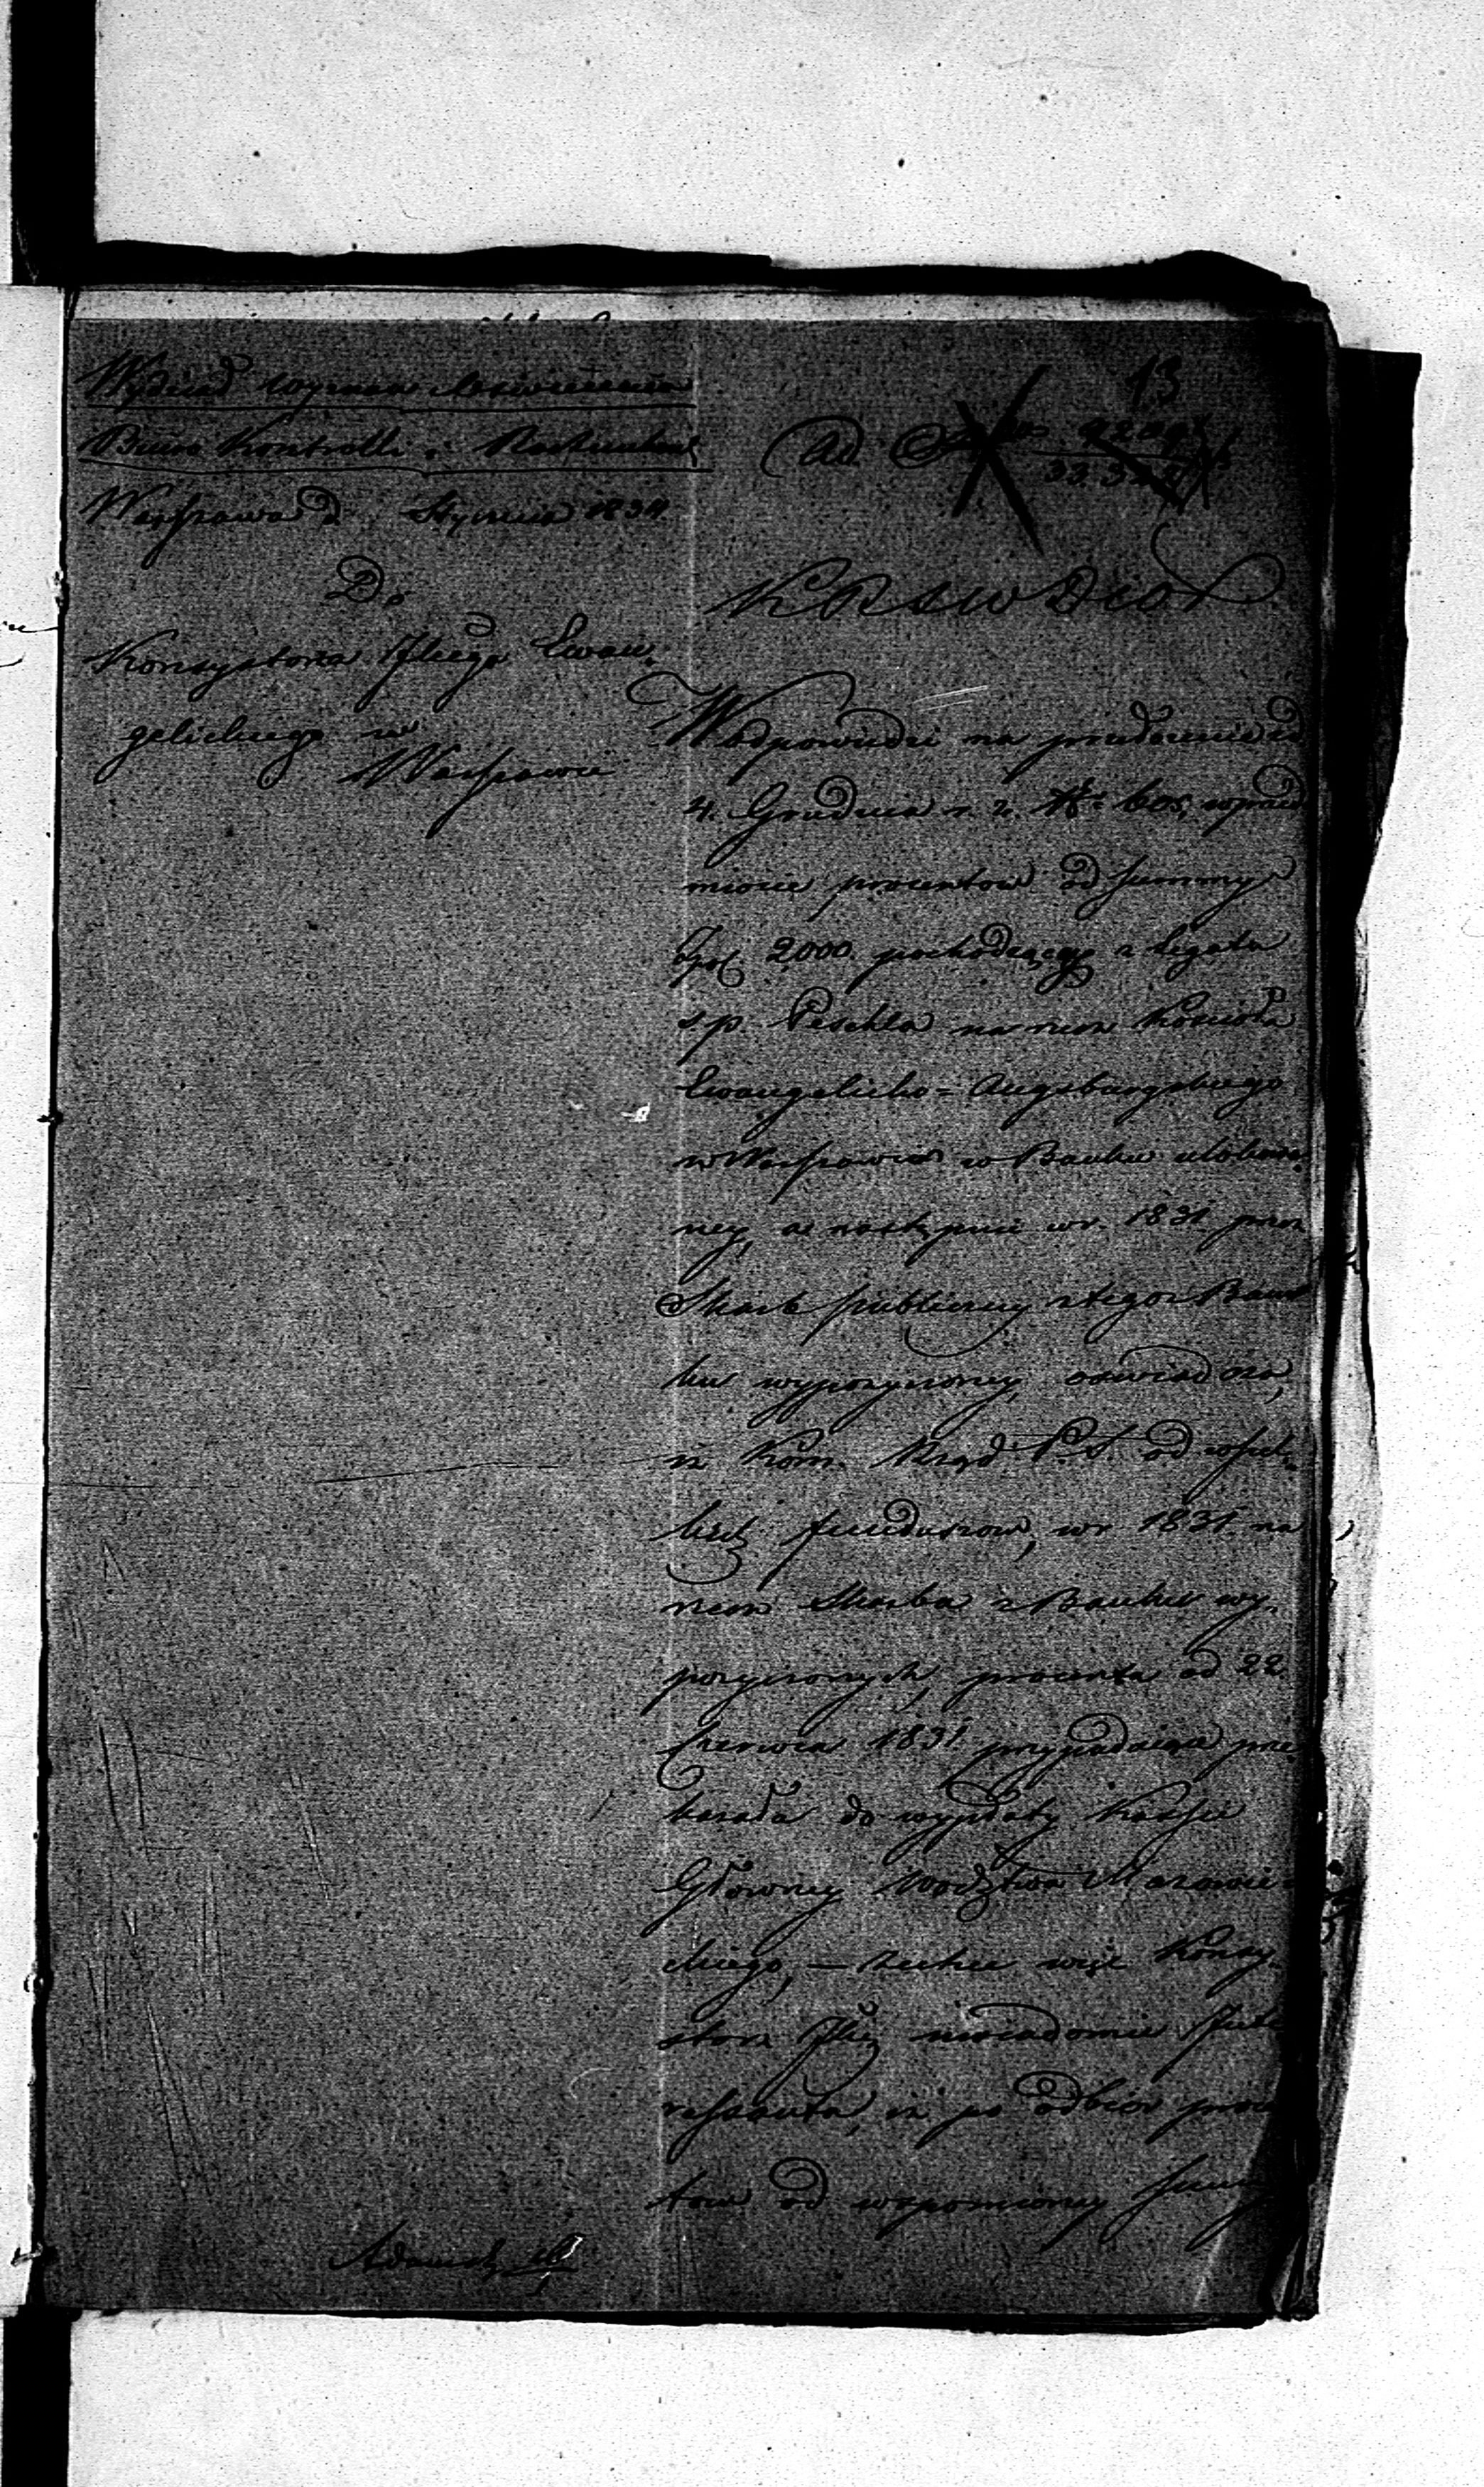 13
Wydział Wyznań i Oświecenia
Biuro Kontrolli i Rachunkow
Warszawa d. Stycznia 1834
Ad
Do
Konsystorza Jlnego Ewan-
gelickiego w
Warszawie
K R S W D i O P
W odpowiedzi na przedstawienie z d
4. Grudnia r. z. No 605, w przed
miocie procentow od summy
Zpol 2000 pochodzącey z legatu
s.p. Peschla na rzecz Kościoła
Ewangelicko=Augsburgskiego
w Warszawie w Banku uloko
ney, a następnie w r. 1831 przez
Skarb publiczny z tegoz Ban
ku wypozyczoney, oświadcza,
iz Kom. Rząd. P. i S. od wszel
kich funduszow, w r. 1831 na
rzecz Skarbu z Banku wy-
pozyczonych, procenta od 22
Czerwca 1831 przypadaiące prze
kazała do wypłaty Kassie
Głowney Wodztwa Mazowie-
ckiego, — zechce więc Konsy-
storz Jlny uwiadomić Jnte
ressanta, iz po odbior procen
tow od wspomnioney summy